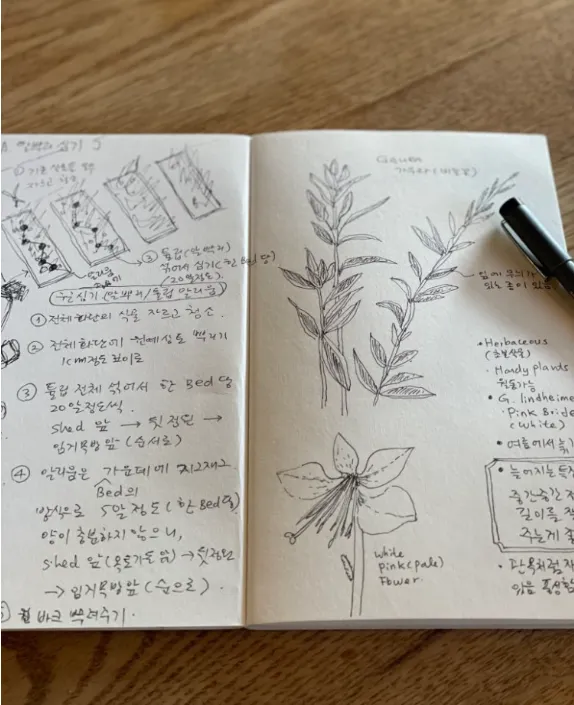 알뿌리 심기
자르고 청소
③ 튤립(알뿌리)
섞어서 심기(한 Bed 당
/20알정도).
구근심기(알뿌리/튤립 알리움)
① 전체화단의 식물 자르고 청소.
② 전체 화단에 원예상토 뿌리기
1cm정도 높이로
③ 튤립 전체 섞어서 한 Bed 당
20알정도씩.
shed 앞 → 뒷정원 →
임거목방앞 (순서로)
④ 알리움은 가운데에 지그재그
Bed의
방식으로 5알 정도 (한 Bed당)
양이 충분하지 않으니,
shed 앞 → 뒷정원
→ 임거목방앞 (순으로).
바크 뿌려주기.
Gaura
가우라(바늘꽃)
잎에 무늬가
있는 종이
• Herbaceous
(초본식물)
• Hardy plants
월동가능
• G. lindheime
• Pink Bride
(White)
• 여름에서
• 늘어지는
중간중간
길이를
주는게
• 관목처럼
white
pink (pale)
Flower.